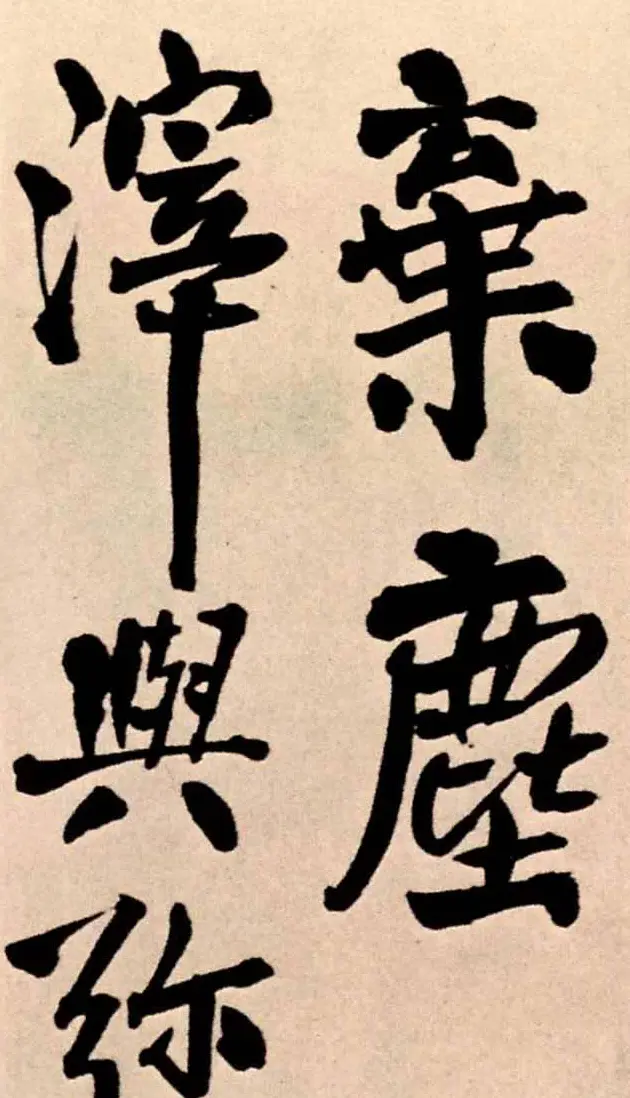 棄塵
滓與弥